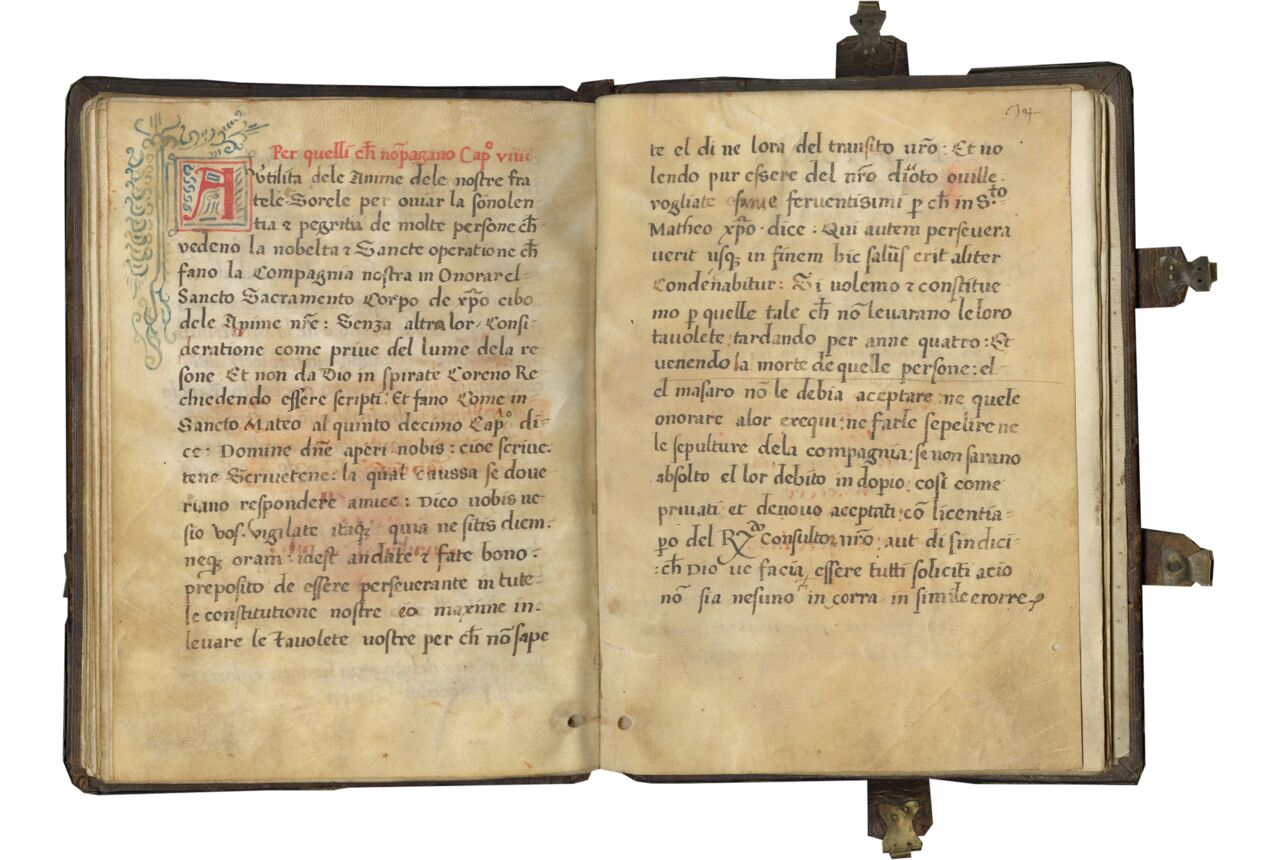 Per quelli ch̄ nō pagano Capº viiii
A Vtilita dele Anime dele nostre fra
tele Sorele per ouiar la sonolen
tia ⁊ pegritia de molte persone ch̄
vedeno la nobelta ⁊ Sancte operatione ch̄
fano la Compagnia nostra in Onorar el
Sancto Sacramento Corpo de xp̄o cibo
dele Anime nr̄e : Senza altra lor Consi-
deratione come priue del lume dela re
sone Et non da Dio in spirate Coreno Re
chiedendo essere scripti : Et fano Come in
Sancto Mateo al quinto decimo Capº di-
ce : Domine dn̄e aperi nobis : cioe scriue-
tene Scriuetene : la qual caussa se doue
riano respondere amice : Dico uobis ne-
sio vos . vigilate itaqꝫ quia ne sitis diem .
neqꝫ oram : idest andate ⁊ fate bono .
preposito de essere perseuerante in tute-
le constitutione nostre eo maxime in-
leuare le tauolete uostre per ch̄ nō sape
34
te el di ne lora del transito ur̄o : Et uo
lendo pur essere del nr̄o di̅oto ouille .
vogliate esserue feruentisimi p̲ ch̄ in S.to
Matheo xp̄o . dice : Qui autem perseuera
uerit usqꝫ in finem hic saluus erit aliter
Condenabitur : Si uolemo ⁊ constitue-
mo p̲ quelle tale ch̄ nō leuarano le loro
tauolete tardando per anne quatro : Et
uenendo la morte de quelle persone : el
el masaro nō le debia aceptare ne quele
onorare alor exequi : ne farle sepelire ne
le sepulture dela compagnia : se non sarano
absolto el lor debito in dopio : cosi come
priuati et denouo aceptati cō licentia
p̲o del Rx̄do Consultor nr̄o : aut di sindici
: ch̄ Dio ue facia essere tutti soliciti acio
nō sia nesuno in corra in simile erorre